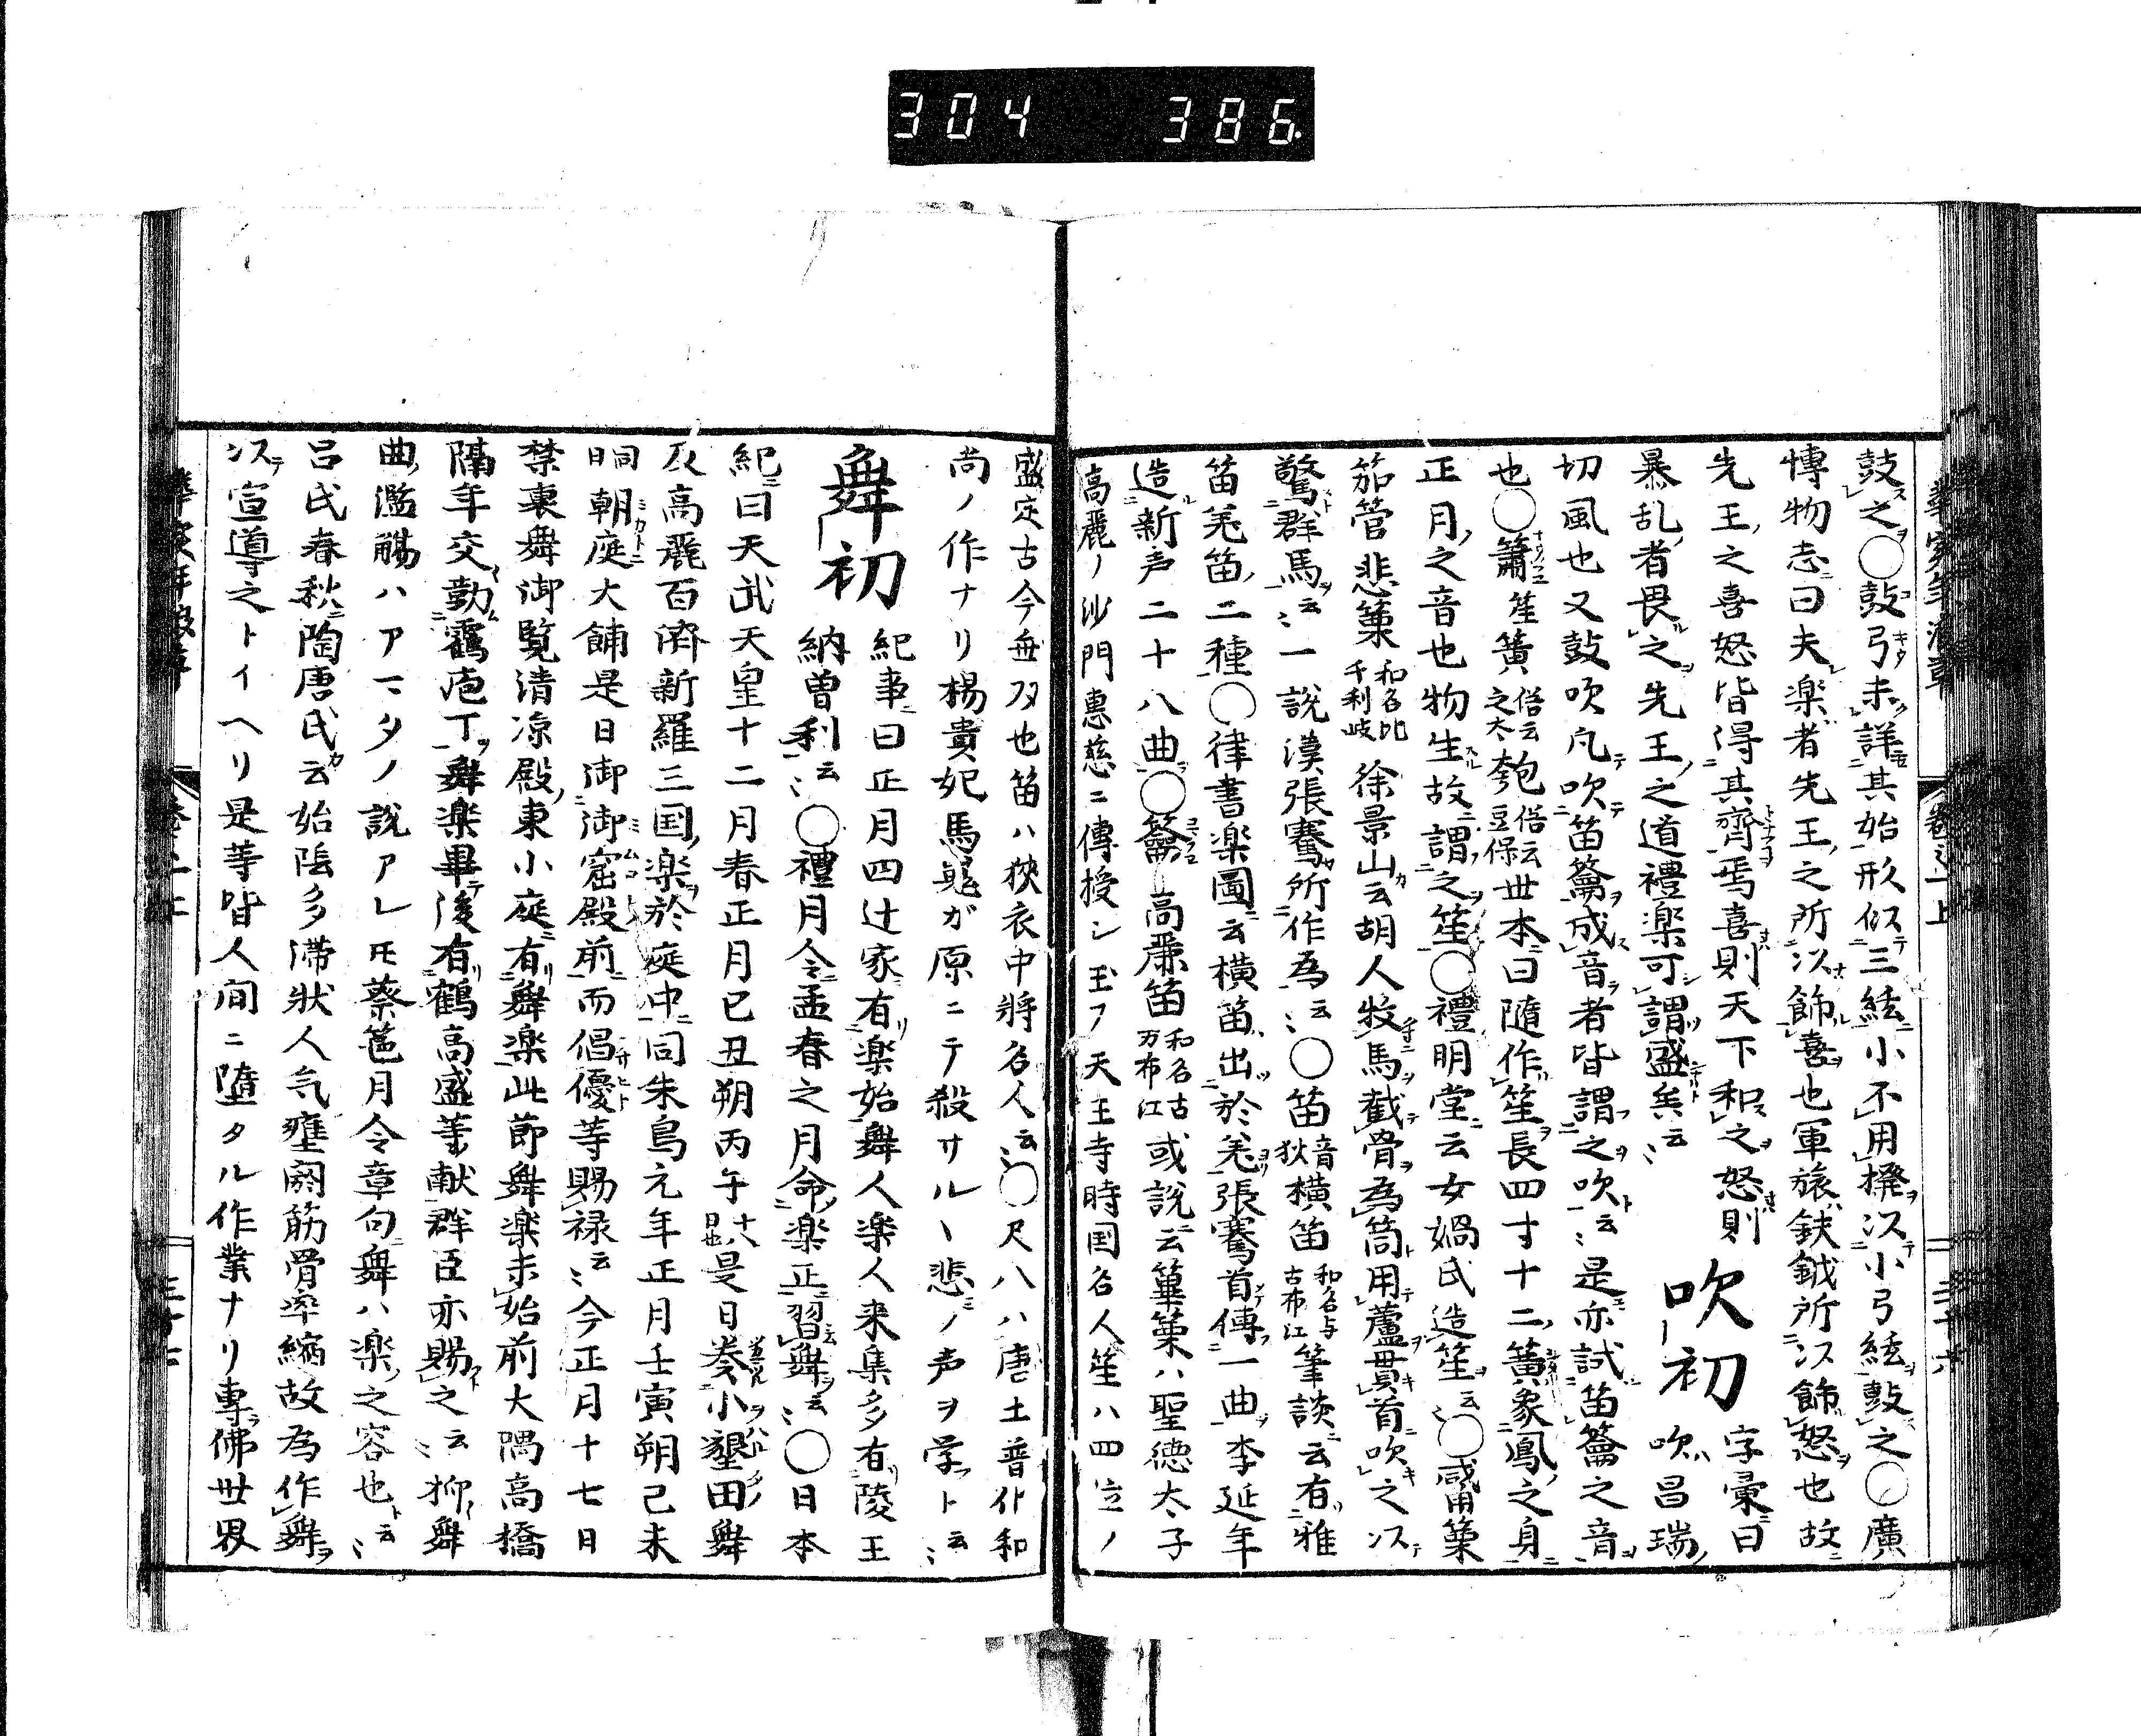 304 386
鼓之〇鼓弓未詳其始形似三絃小不用撥以小弓絃鼓之〇廣
博物志曰夫楽者先王之所以飾喜也軍旅鈇鉞所以飾怒也故
先王之喜怒皆得其齊焉喜則天下和之怒則
暴乱者畏之先王之道禮楽可謂盛矣云〻
吹初
字彙曰
吹昌瑞
切風也又鼓吹凡吹笛籥成音者皆謂之吹云〻是亦試笛籥之音
也〇簫笙簧俗云之太匏俗云豆保世本曰隨作笙長四寸十二簧象鳳之身
正月之音也物生故謂之笙〇禮明堂云女媧氏造笙云〻〇觱篥
笳管悲篥和名比千利岐徐景山云胡人牧馬截骨為筒用蘆貫首吹之以
驚群馬云〻一説漢張騫所作為云〻〇笛音狄横笛和名与古布江筆談云有雅
笛羌笛二種〇律書楽圖云横笛出於羌張騫首傳一曲李延年
造新声二十八曲〇籥高麗笛和名古万布江或説云篳篥ハ聖徳太子
高麗ノ沙門惠慈ニ傳授シ玉フ天王寺時国名人笙ハ四位ノ
盛定古今無双也笛ハ狹衣中將名人云〻〇尺八ハ唐土普化和
尚ノ作ナリ楊貴妃馬嵬ガ原ニテ殺サルヽ悲ノ声ヲ学ト云〻
舞初
紀事曰正月四辻家有楽始舞人楽人来集多有陵王
納曽利云〻〇禮月令孟春之月命楽正習舞云〻〇日本
紀曰天武天皇十二月春正月已丑朔丙午十八日也是日奏小墾田舞
及高麗百済新羅三国楽於庭中同朱鳥元年正月壬寅朔己未
日同朝庭大餔是日御御窟殿前而倡優等賜禄云〻今正月十七日
禁裏舞御覧清凉殿東小庭有舞楽此節舞楽未始前大隅高橋
隔年交勤靏庖丁舞楽畢後有鶴高盛等献群臣亦賜之云〻抑舞
曲濫觴ハアマタノ説アレ𪜈蔡邕月令章句舞ハ楽之容也ト云〻
呂氏春秋陶唐氏云始陰多滞狀人气壅閼筋骨牽縮故為作舞
以宣導之トイヘリ是等皆人間ニ墮タル作業ナリ專佛世界